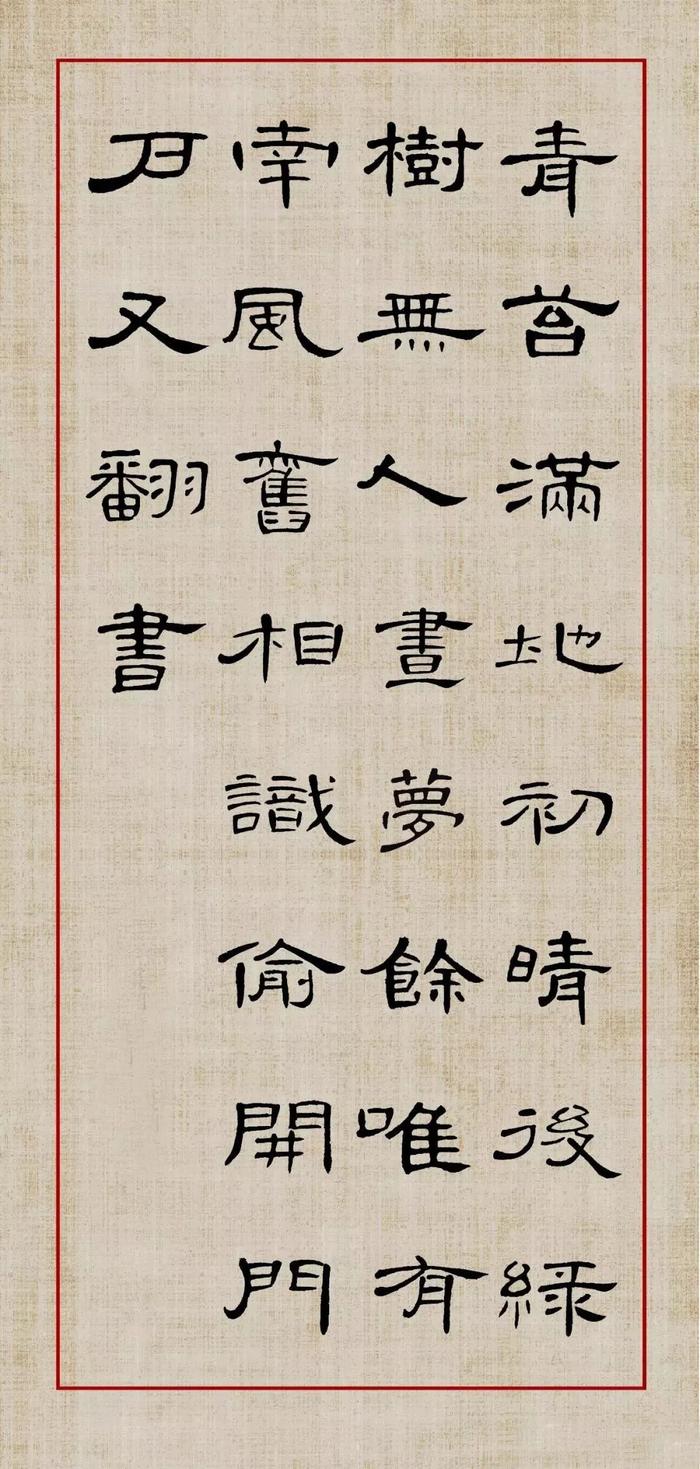 青苔滿地初晴後綠
樹無人晝夢餘唯有
南風舊相識偷開門
戶又翻書